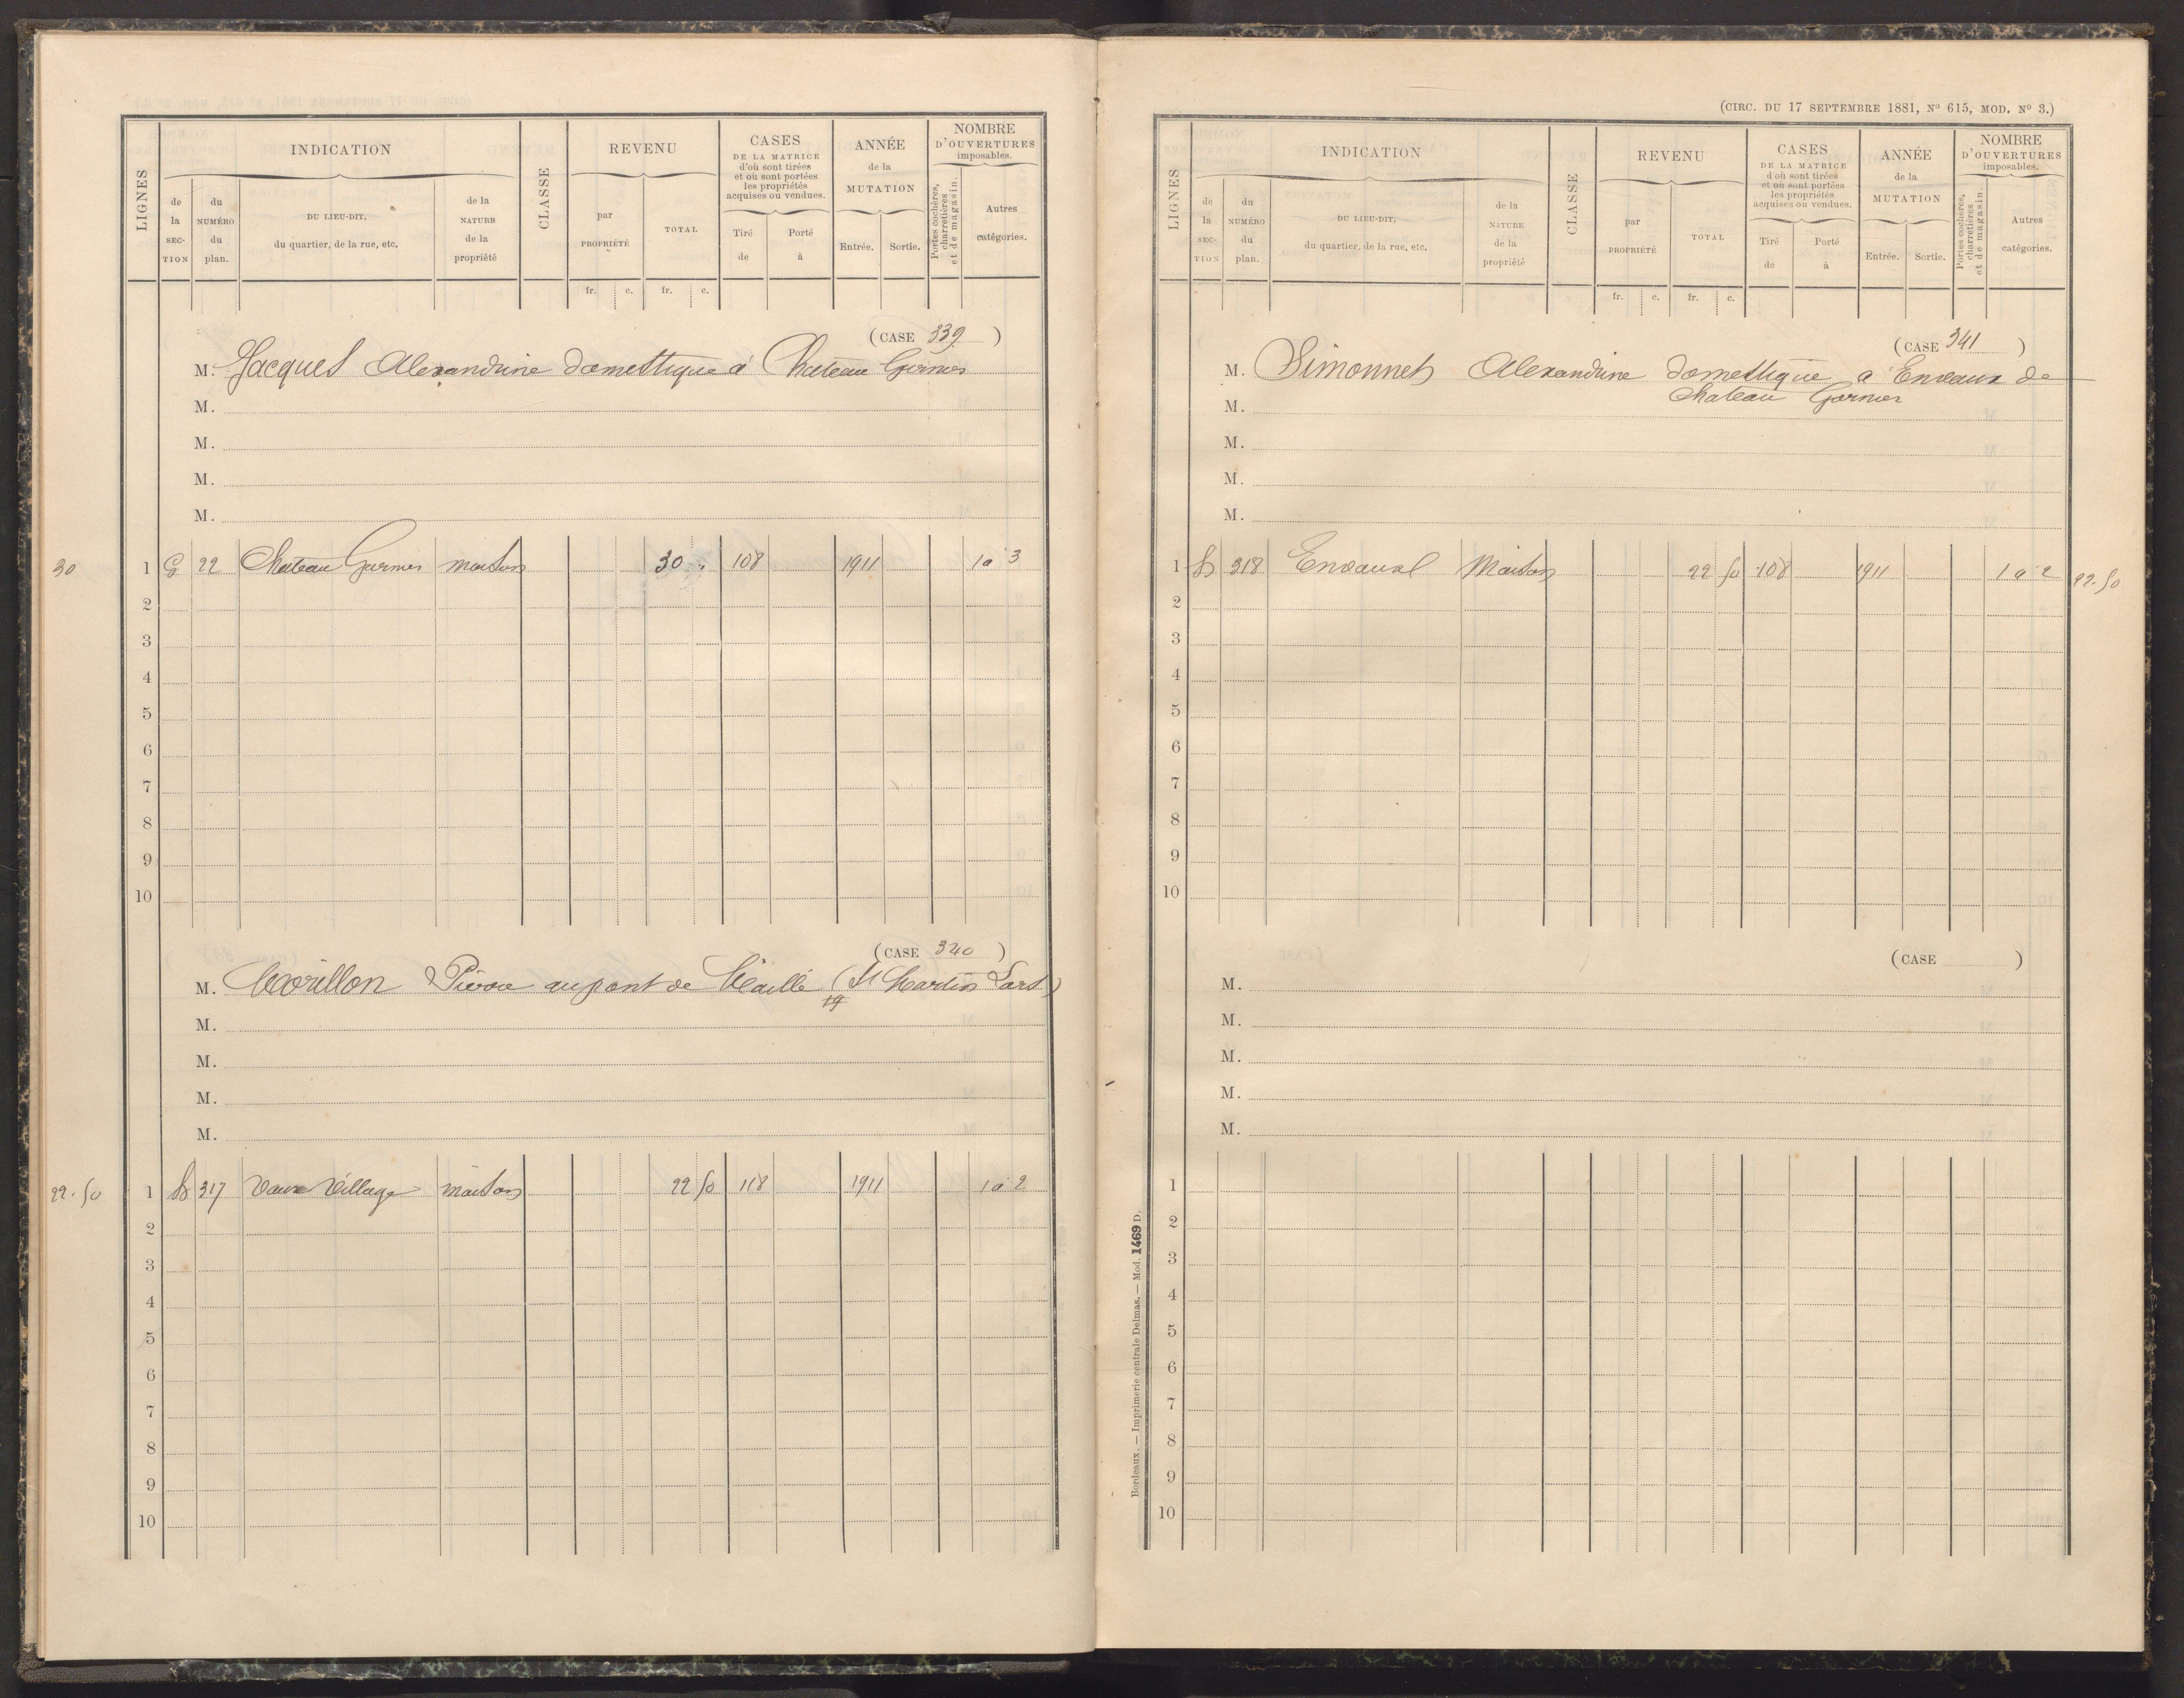 LIGNES
INDICATION
de la SECTION
du NUMÉRO du plan.
DU LIEU-DIT, du quartier, de la rue, etc.
de la NATURE de la propriété
CLASSE
REVENU
par PROPRIÉTÉ
TOTAL
fr. c. fr. c.
CASES
DE LA MATRICE
d'où sont tirées
et où sont portées
les propriétés
acquises ou vendues.
Tiré de
Porté à
ANNÉE
de la
MUTATION
Entrée. Sortie.
NOMBRE
D'OUVERTURES
imposables.
Portes cochères, charretières et de magasin.
Autres catégories.
(CASE 339)
M. Jacques Alexandrine domestique à Chateau Garnier
M.
M.
M.
M.
30 1 G 22 Chateau Garnier maison 30 " 108 1911 1 à 3
2
3
4
5
6
7
8
9
10
(CASE 340)
M. Pierre au pont de (St Martin Lars)
M.
M.
M.
M.
22.50 1 317 Village maison 22 50 118 1911 1 à 2
2
3
4
5
6
7
8
9
10
(CIRC. DU 17 SEPTEMBRE 1881, Nº 615, MOD. Nº 3.)
LIGNES
INDICATION
de la SECTION
du NUMÉRO du plan.
DU LIEU-DIT, du quartier, de la rue, etc.
de la NATURE de la propriété
CLASSE
REVENU
par PROPRIÉTÉ
TOTAL
fr. c. fr. c.
CASES
DE LA MATRICE
d'où sont tirées
et où sont portées
les propriétés
acquises ou vendues.
Tiré de
Porté à
ANNÉE
de la
MUTATION
Entrée. Sortie.
NOMBRE
D'OUVERTURES
imposables.
Portes cochères, charretières et de magasin.
Autres catégories.
(CASE 341)
M. Simonnet Alexandrine domestique a Envaux de
Chateau Garnier
M.
M.
M.
M.
1 318 Maison 22 50 108 1911 1 à 2 22.50
2
3
4
5
6
7
8
9
10
(CASE )
M.
M.
M.
M.
M.
1
2
3
4
5
6
7
8
9
10
Bordeaux. — Imprimerie centrale Delmas. — Mod. 1469 D.